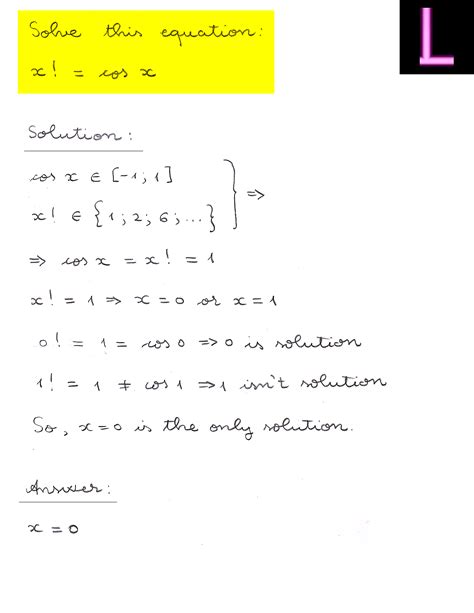 Solve this equation:
L
x! = cos x
Solution:
cos x ∈ [-1; 1]
x! ∈ {1; 2; 6; ...} } ⇒
⇒ cos x = x! = 1
x! = 1 ⇒ x = 0 or x = 1
0! = 1 = cos 0 ⇒ 0 is solution
1! = 1 ≠ cos 1 ⇒ 1 isn't solution
So, x = 0 is the only solution.
Answer:
x = 0